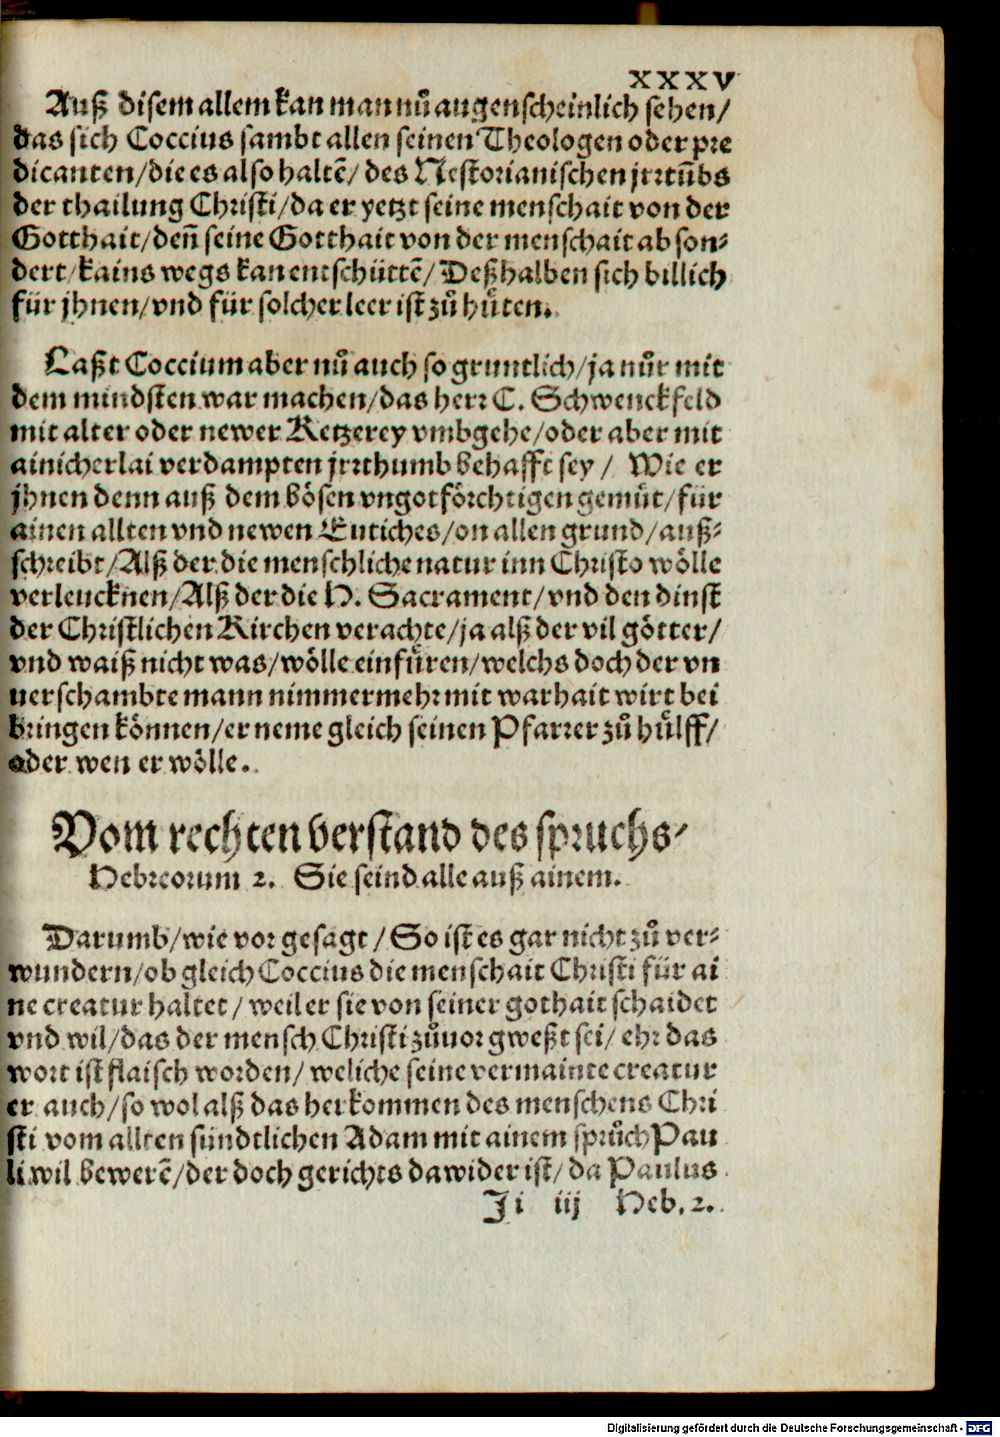 XXXV
Auß disem allem kan man nū augenscheinlich sehen/
das sich Coccius sambt allen seinen Theologen oder pre
dicanten/die es also haltē/ des Nestorianischen jrrtūbs
der thailung Christi/da er yetzt seine menschait von der
Gotthait/deñ seine Gotthait von der menschait abson⸗
dert/kains wegs kan entschüttē/Deßhalben sich billich
für jhnen/vnd für solcher leer ist zů hůten.
Laßt Coccium aber nū auch so gruntlich/ja nůr mit
dem mindsten war machen/das herr C. Schwenckfeld
mit alter oder newer Ketzerey vmbgehe/oder aber mit
ainicherlai verdampten jrrthumb behafft sey/ Wie er
jhnen denn auß dem bösen vngotförchtigen gemůt/für
ainen allten vnd newen Eutiches/on allen grund/auß⸗
schreibt/Alß der die menschliche natur inn Christo wölle
verleucknen/Alß der die H. Sacrament/vnd den dinst
der Christlichen Kirchen verachte/ja alß der vil götter/
vnd waiß nicht was/wölle einfůren/welchs doch der vn
uerschambte mann nimmermehr mit warhait wirt bei
bringen können/er neme gleich seinen Pfarrer zů hůlff/
oder wen er wölle.
Vom rechten verstand des spruchs⸗
Hebreorum 2. Sie seind alle auß ainem.
Darumb/wie vor gesagt/So ist es gar nicht zů ver⸗
wundern/ob gleich Coccius die menschait Christi für ai
ne creatur haltet/ weil er sie von seiner gothait schaidet
vnd wil/das der mensch Christi zůuor gweßt sei/ ehr das
wort ist flaisch worden/ weliche seine vermainte creatur
er auch/so wol alß das herkommen des menschens Chri
sti vom allten sündtlichen Adam mit ainem sprůch Pau
li wil bewerē/der doch gerichts dawider ist/da Paulus
Ji iij Heb. 2.
Digitalisierung gefördert durch die Deutsche Forschungsgemeinschaft - DFG